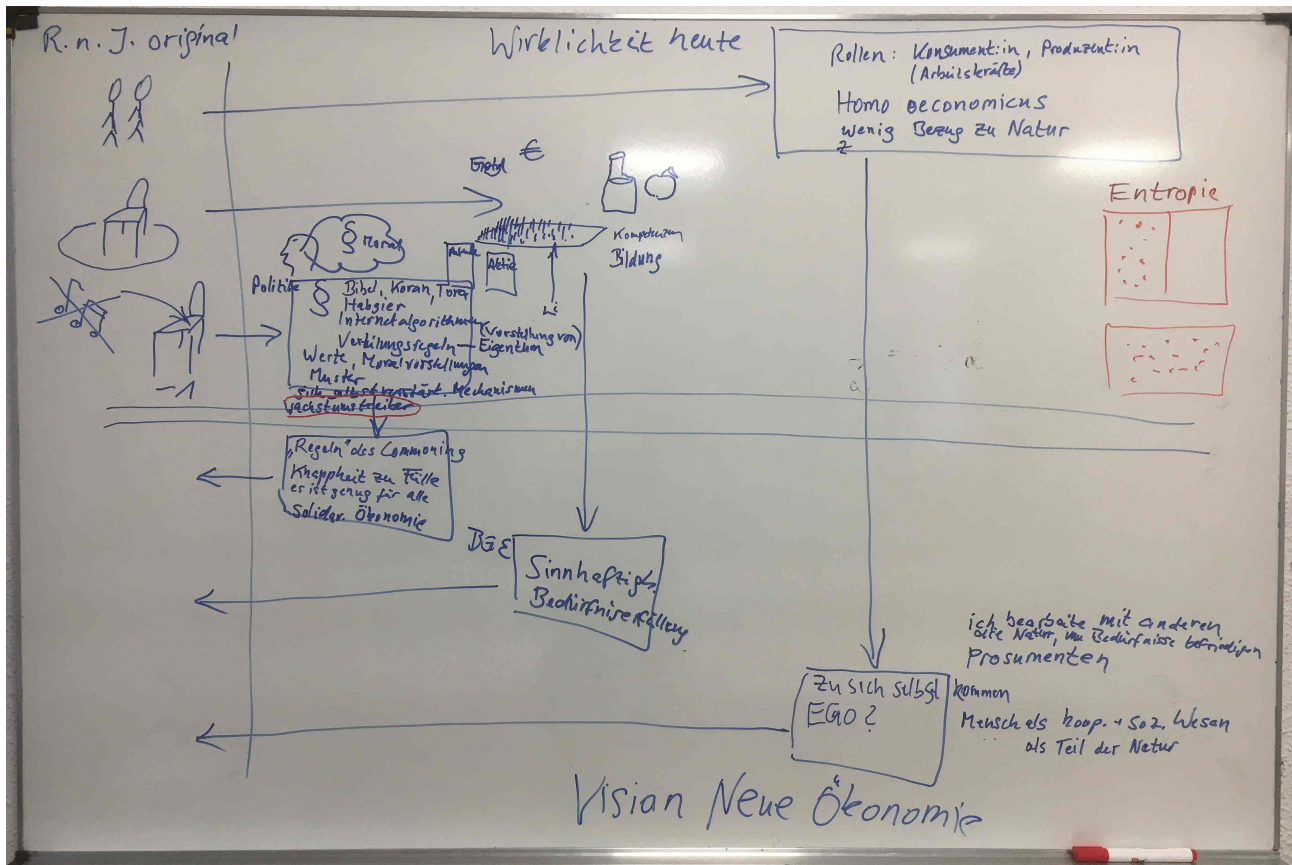 R.n.J. original
Wirklichkeit heute
Rollen: Konsument:in, Produzent:in
(Arbeitskräfte)
Homo oeconomicus
wenig Bezug zu Natur
€
Entropie
§ Moral
Kompetenzen
Bildung
Aktie
Politik
§
Bibel, Koran, Tora
Habgier
Internetalgorithmen
(Vorstellung von)
Verteilungsregeln — Eigentum
Werte, Moralvorstellungen
Muster
sich selbst verstärk. Mechanismen
Wachstumstreiber
-1
„Regeln" des Commoning
Knappheit zu Fülle
es ist genug für alle
Solidar. Ökonomie
BGE
Sinnhaftigk.
Bedürfniserfüllung
ich bearbeite mit anderen
die Natur, um Bedürfnisse befriedigen
Prosumenten
Zu sich selbst kommen
EGO?
Mensch als koop. + soz. Wesen
als Teil der Natur
Vision Neue Ökonomie